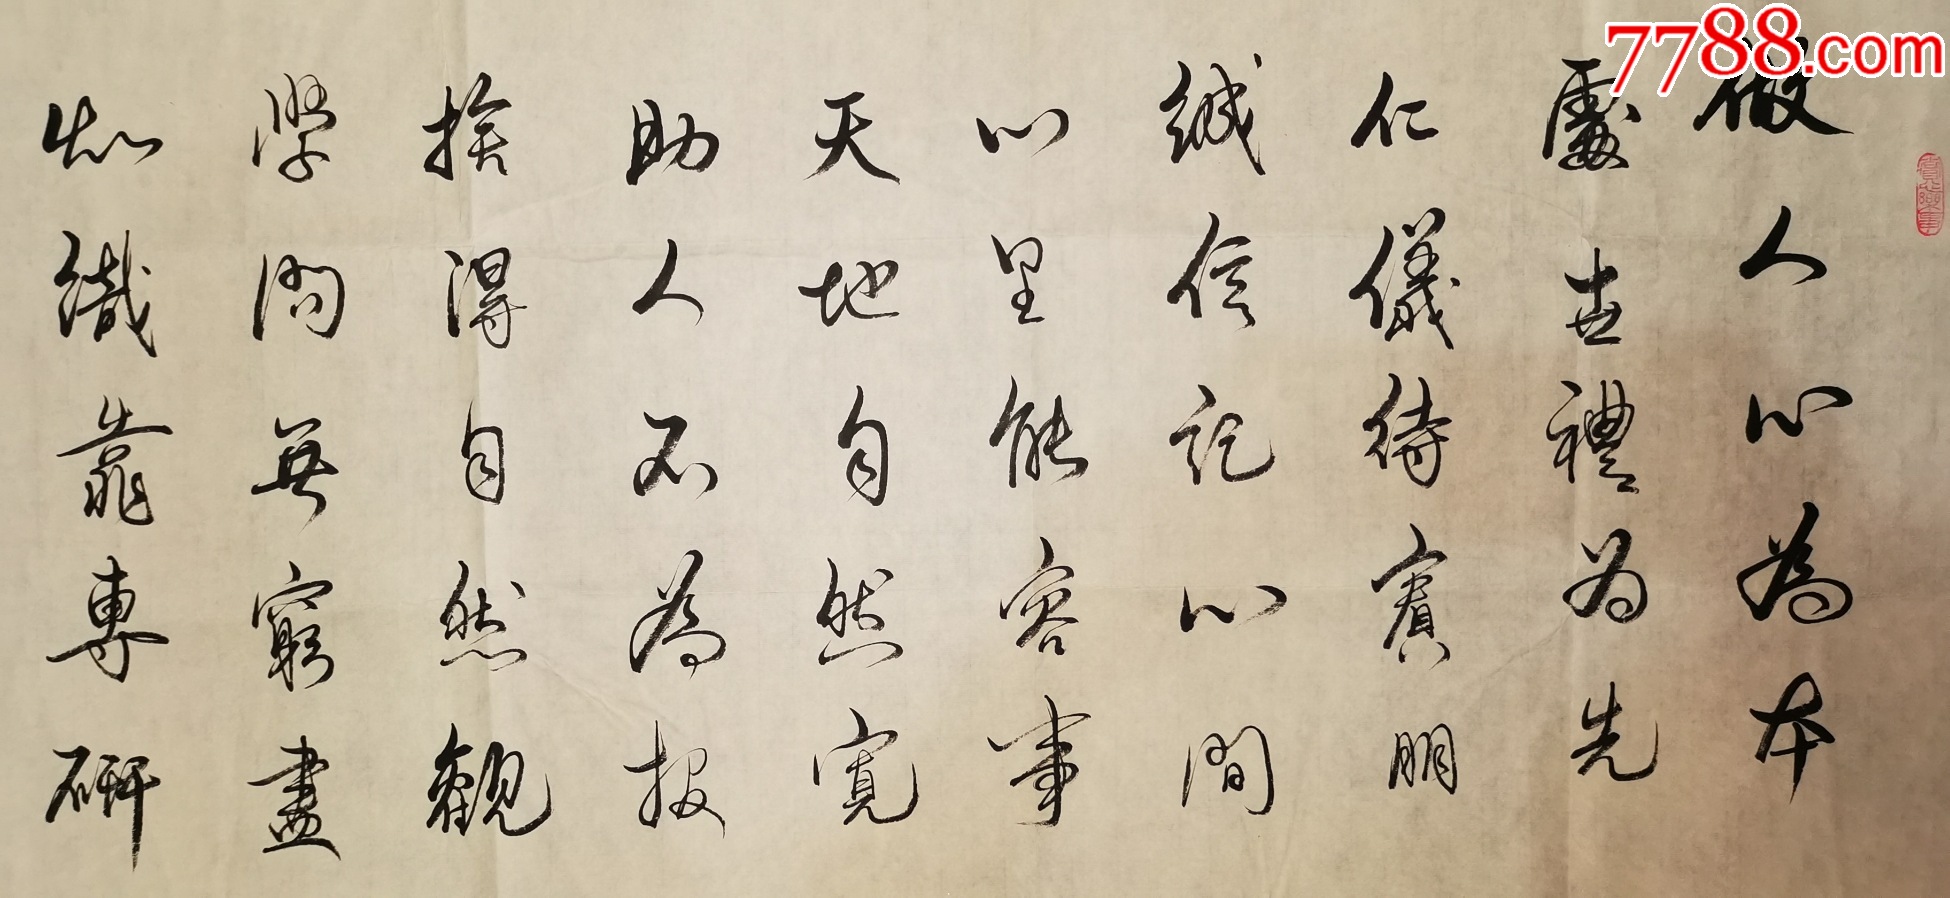 7788.com
做人心為本
處世禮为先
仁儀待賓朋
誠信記心間
心里能容事
天地自然寬
助人不為报
捨得自然觀
學問無窮盡
知識靠專研